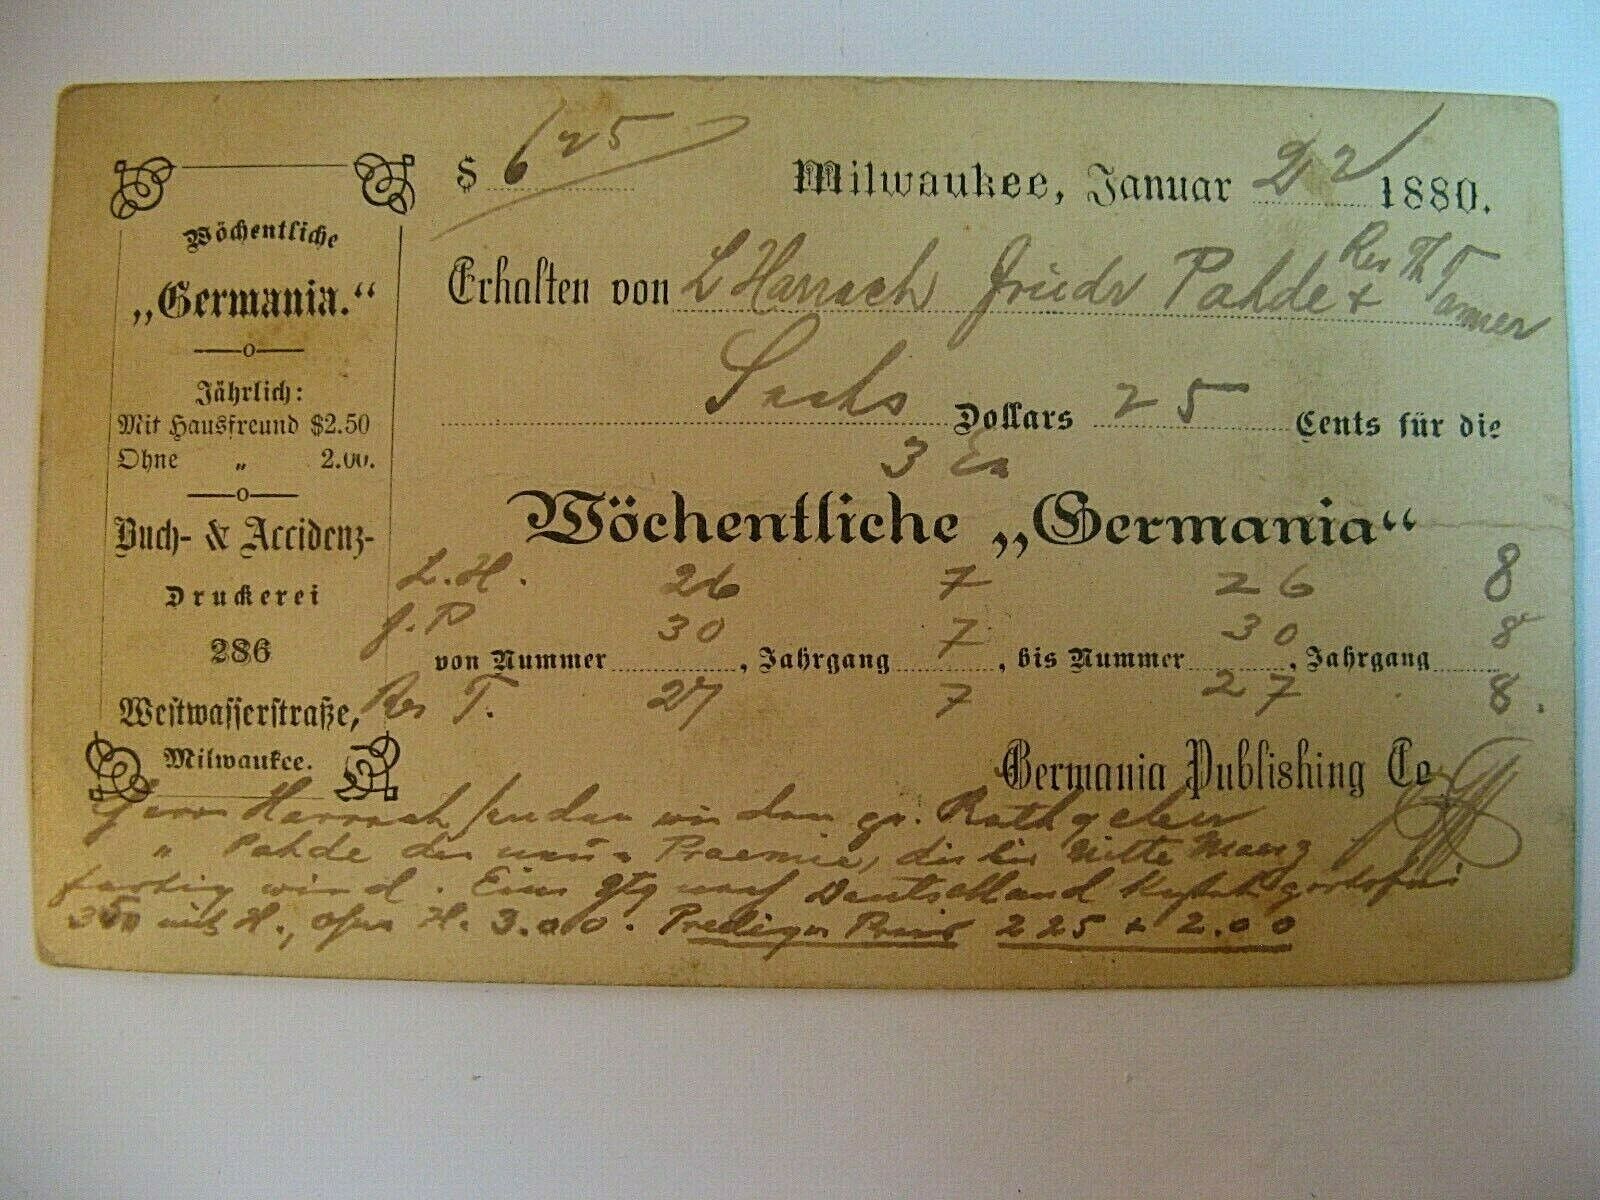 Wöchentliche
„Germania.“
Jährlich:
Mit Hausfreund $2.50
Ohne „ 2.00.
Buch- & Accidenz-
Druckerei
286
Westwasserstraße,
Milwaukee.
$ 6 25 Milwaukee, Januar 22 1880.
Erhalten von L Harrach Friedr Pahde + Rev Th Turner
Sechs Dollars 25 Cents für die
3 Ex
Wöchentliche „Germania“
L. H. 26 7 26 8
F. P 30 7 30 8
von Nummer , Jahrgang , bis Nummer , Jahrgang
Rev T. 27 7 27 8.
Germania Publishing Co
Herrn Harrach senden wir den gr. Rathgeber
" Pahde die neue Praemie, die bis Mitte Maerz
fertig wird. Eine Ztg nach Deutschland kostet portofrei
350 mit H., ohne H. 3.00. Prediger Preis 225 + 2.00